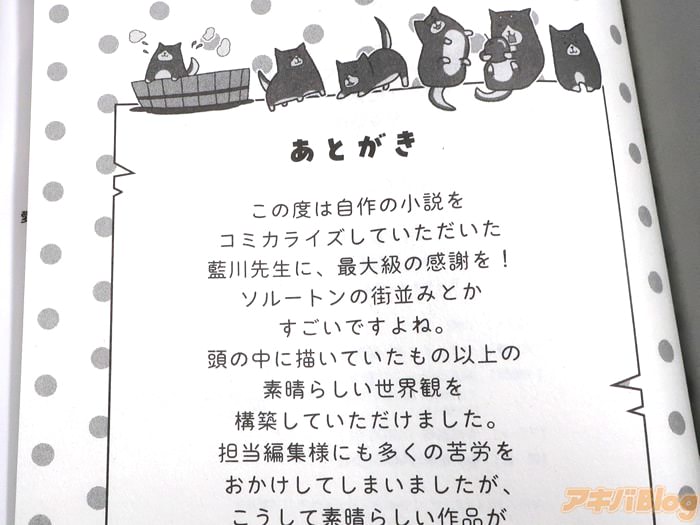 あとがき
この度は自作の小説を
コミカライズしていただいた
藍川先生に、最大級の感謝を！
ソルートンの街並みとか
すごいですよね。
頭の中に描いていたもの以上の
素晴らしい世界観を
構築していただけました。
担当編集様にも多くの苦労を
おかけしてしまいましたが、
こうして素晴らしい作品が
アキバBlog